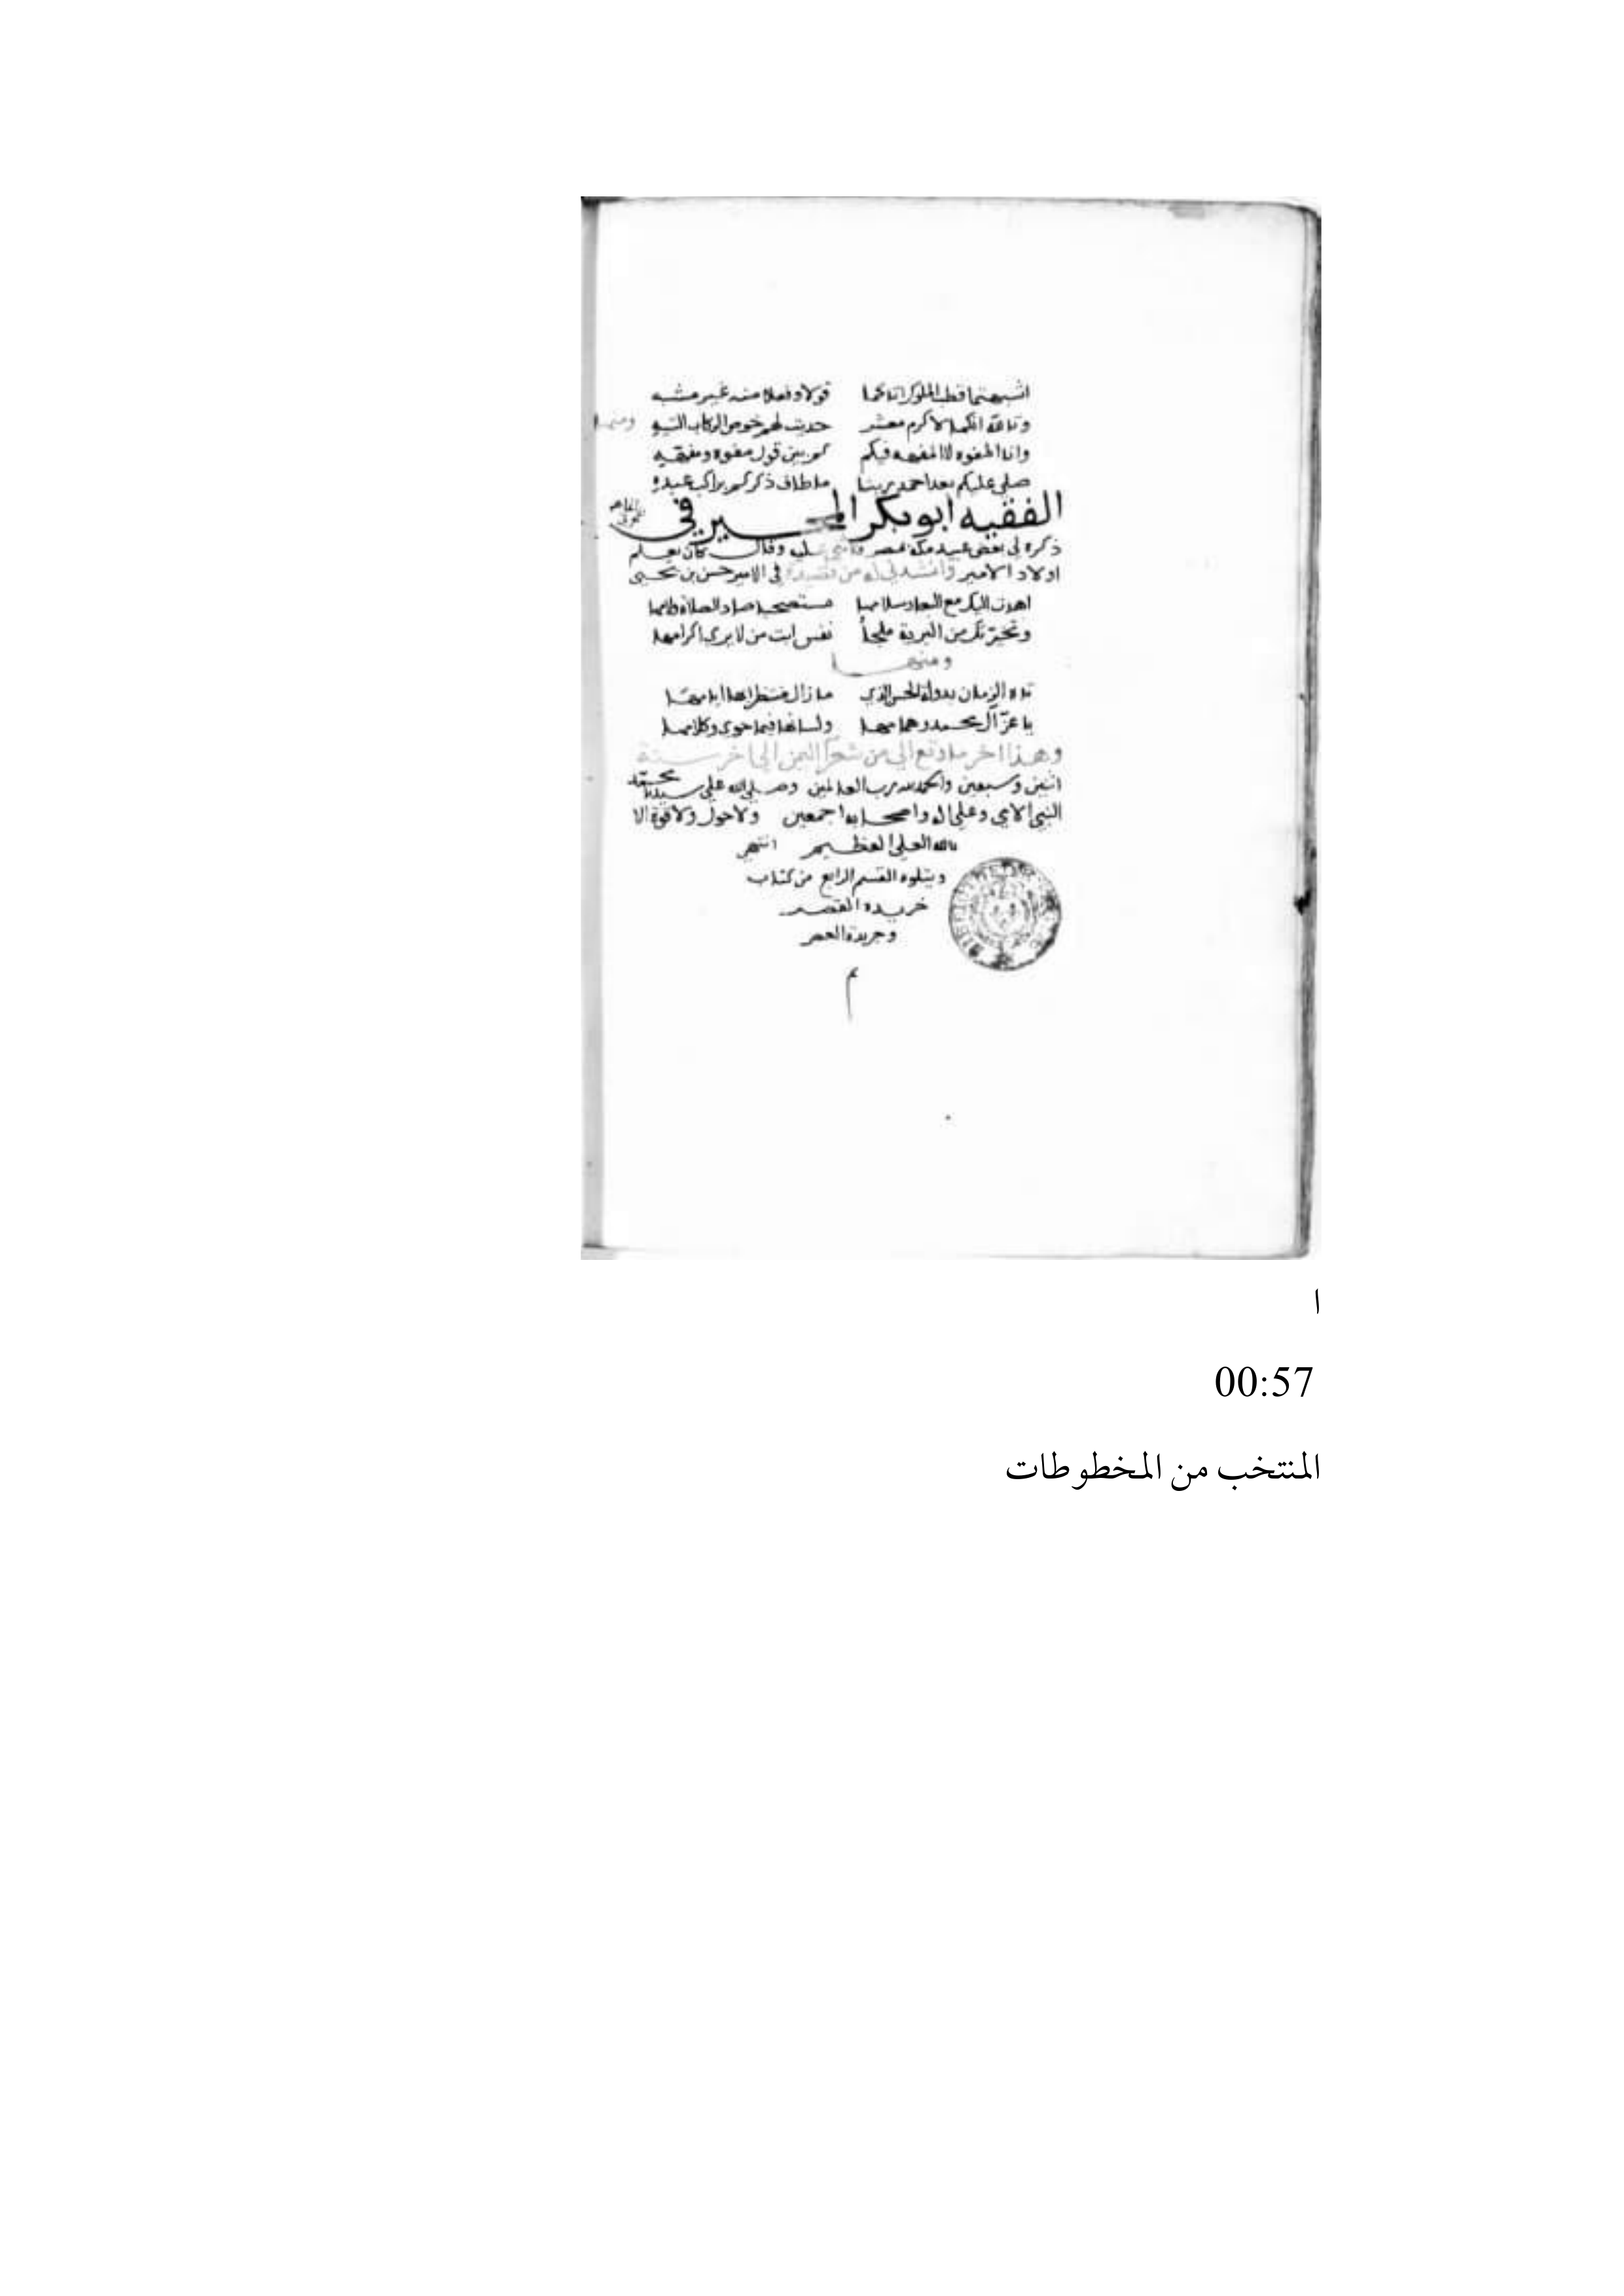 اشبهتما قطب الملوك اباكما قولا وفعلا منه غير مشبه
وتالله انكما لاكرم معشر حديت لهم خوص الركاب ومنها
وانا المفوه لا المفهه فيكم كم بين قول مفوه ومفهه
صلى عليكم بعد احمد ربنا ما طاف ذكركم براكب
الفقيه ابو بكر في
ذكره لي بعض عبيد مكة بمصر وقال كان يعلم
اولاد الامير وانشدني له من قصيدة في الامير حسن بن يحيى
اهدت اليك مع البعاد سلامها
وتخيرتك من البرية ملجأ نفس ابت من لا يرى اكرامها
ومنها
تاه الزمان بدولة الحسن الذي ما زال منتظرا لها ايامها
يا عز آل محمد وهمامها ولسانها فيما حوى وكلامها
وهذا اخر ما وقع الي من شعر اليمن الى اخر سنة
اثنين وسبعين والحمد لله رب العالمين وصلى الله على سيدنا محمد
النبي الامي وعلى اله واصحابه اجمعين ولا حول ولا قوة الا
بالله العلي العظيم انتهى
ويتلوه القسم الرابع من كتاب
خريدة القصر
وجريدة العصر
م
ا
00:57
المنتخب من المخطوطات